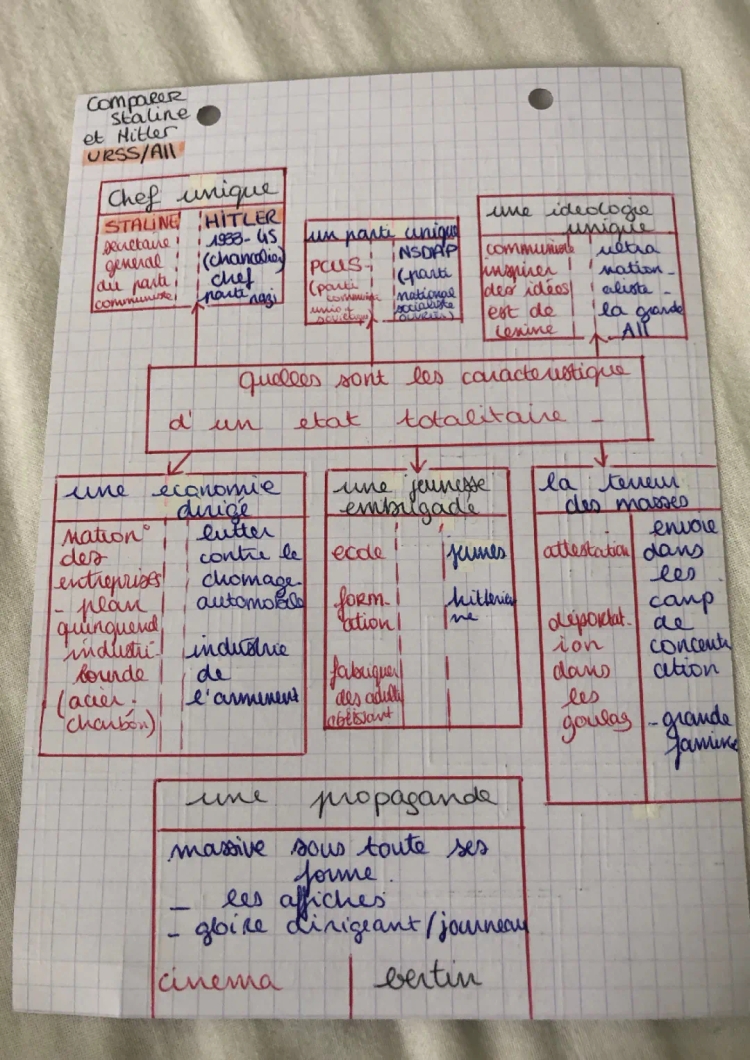 Comparer
Staline
et Hitler
URSS/All
Chef unique
STALINE
secretaire
general
du parti
communiste
HITLER
1933-45
(chancelier)
chef
parti nazi
un parti unique
PCUS-
(parti
communiste
union
soviétique)
NSDAP
(parti
national
socialiste
ouvrier)
une ideologie
unique
communiste
inspirer
des idées
est de
Lenine
ultra
nation-
aliste -
la grande
All
Quelles sont les caracteristique
d'un etat totalitaire -
une economie
dirigé
nation°
des
entreprises
- plan
quinquenal
industri-
lourde
(acier.
charbon)
lutter
contre le
chomage
automobile
industrie
de
l'armement
une jeunesse
embrigadé
ecole
form-
ation
fabriquer
des adulte
obéissant
jeunes
hitlerien
ne
la terreur
des masses
attestation
déportat-
ion
dans
les
goulag
envoie
dans
les
camp
de
concentr
ation
- grande
famine
une propagande
massive sous toute ses
forme.
- les affiches
- gloire dirigeant/journeau
cinema
bertin